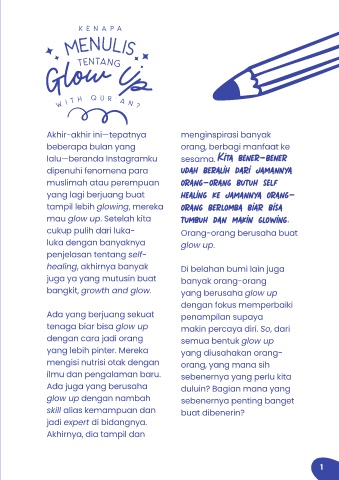 KENAPA
MENULIS
TENTANG
Glow Up
WITH QUR'AN?
Akhir-akhir ini—tepatnya
beberapa bulan yang
lalu—beranda Instagramku
dipenuhi fenomena para
muslimah atau perempuan
yang lagi berjuang buat
tampil lebih glowing, mereka
mau glow up. Setelah kita
cukup pulih dari luka-
luka dengan banyaknya
penjelasan tentang self-
healing, akhirnya banyak
juga ya yang mutusin buat
bangkit, growth and glow.
Ada yang berjuang sekuat
tenaga biar bisa glow up
dengan cara jadi orang
yang lebih pinter. Mereka
mengisi nutrisi otak dengan
ilmu dan pengalaman baru.
Ada juga yang berusaha
glow up dengan nambah
skill alias kemampuan dan
jadi expert di bidangnya.
Akhirnya, dia tampil dan
menginspirasi banyak
orang, berbagi manfaat ke
sesama. KITA BENER-BENER
UDAH BERALIH DARI JAMANNYA
ORANG-ORANG BUTUH SELF
HEALING KE JAMANNYA ORANG-
ORANG BERLOMBA BIAR BISA
TUMBUH DAN MAKIN GLOWING.
Orang-orang berusaha buat
glow up.
Di belahan bumi lain juga
banyak orang-orang
yang berusaha glow up
dengan fokus memperbaiki
penampilan supaya
makin percaya diri. So, dari
semua bentuk glow up
yang diusahakan orang-
orang, yang mana sih
sebenernya yang perlu kita
duluin? Bagian mana yang
sebenernya penting banget
buat dibenerin?
1